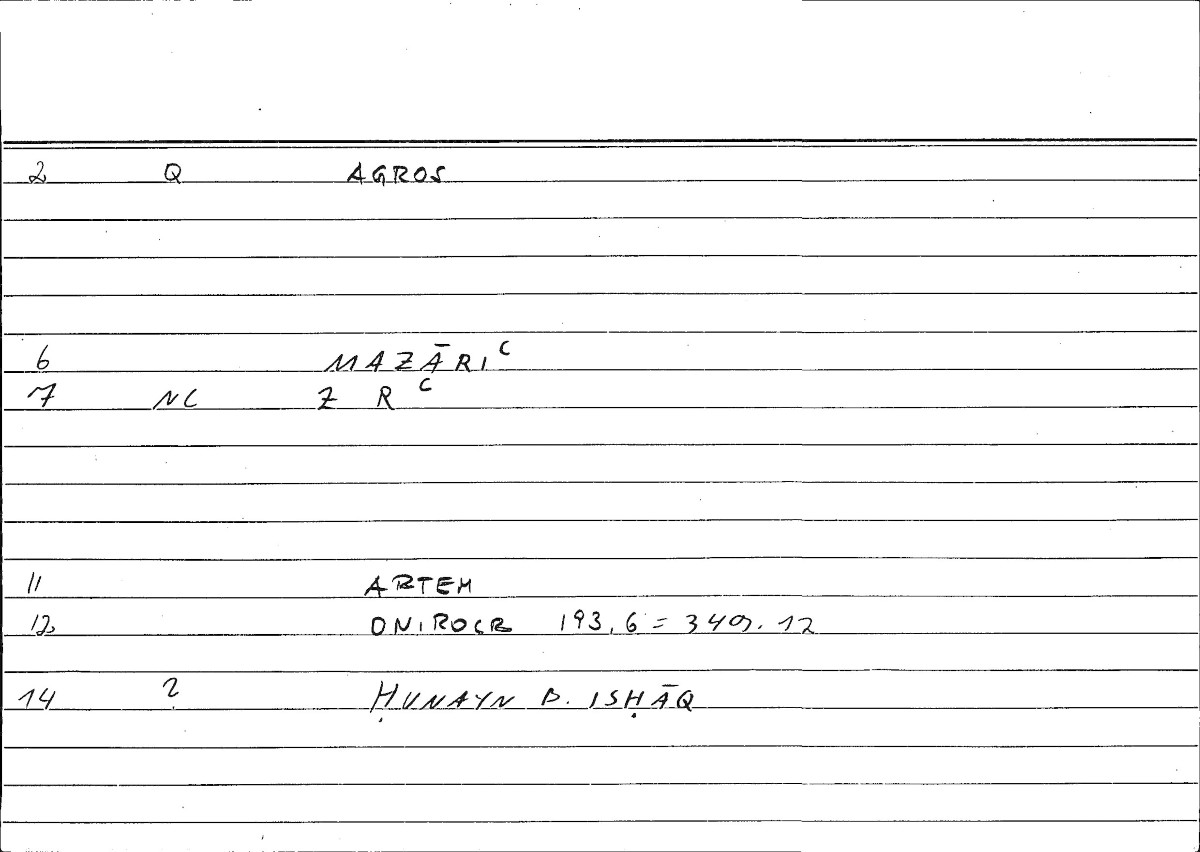 2 Q AGROS
6 MAZĀRIᶜ
7 NC Z R ᶜ
11 ARTEM
12 ONIROCR 193,6 = 349.12
14 ? ḤUNAYN B. ISḤĀQ